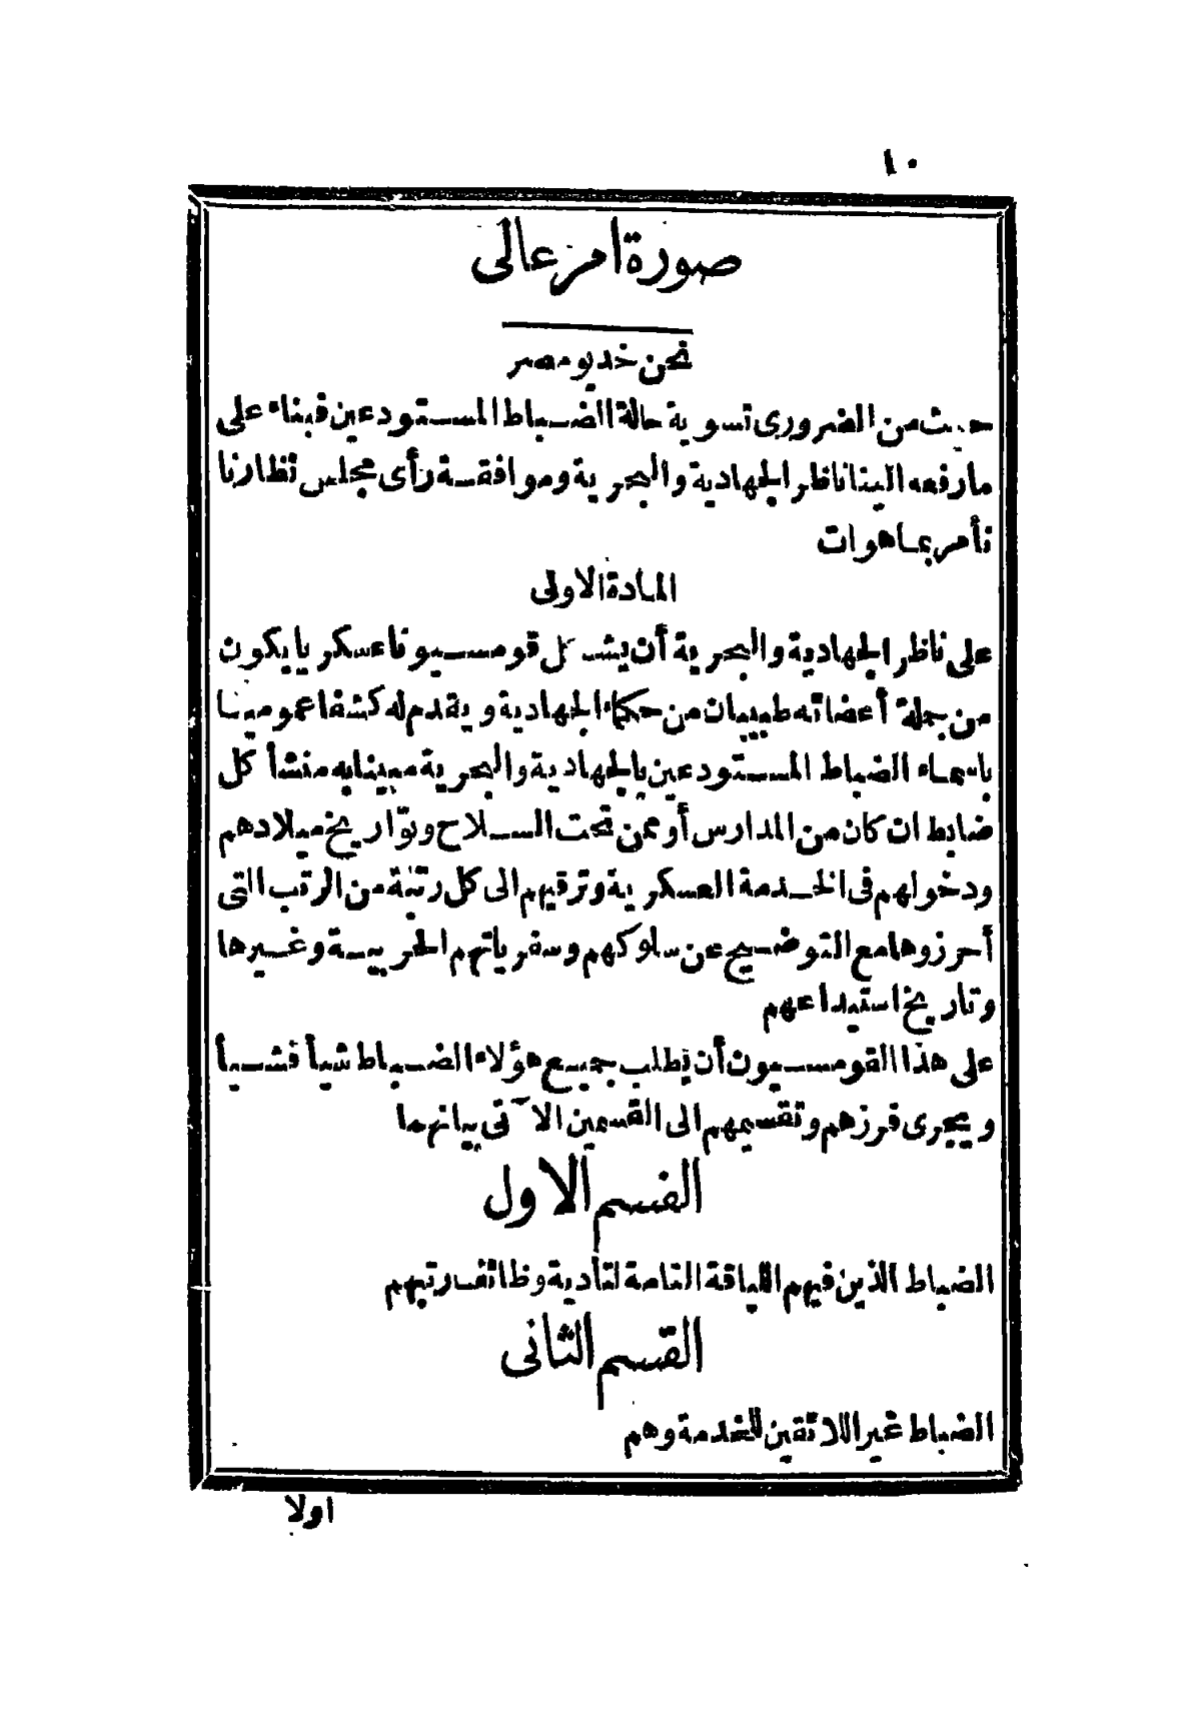 ١٠
صورة امر عالى
نحن خديو مصر
حيث من الضرورى تسوية حالة الضباط المستودعين فبناء على
مارفعه الينا ناظر الجهادية والبحرية وموافقة رأى مجلس نظارنا
نأمر بما هو ات
المادة الاولى
على ناظر الجهادية والبحرية أن يشكل قومسيونا عسكريا يكون
من جملة أعضائه طبيبان من حكماء الجهادية ويقدم له كشفا عموميا
باسماء الضباط المستودعين بالجهادية والبحرية مبينا به منشأ كل
ضابط ان كان من المدارس أو ممن تحت السلاح وتواريخ ميلادهم
ودخولهم فى الخدمة العسكرية وترقيهم الى كل رتبة من الرتب التى
أحرزوها مع التوضيح عن سلوكهم وسفرياتهم الحربية وغيرها
وتاريخ استيداعهم
على هذا القومسيون أن يطلب جميع هؤلاء الضباط شيأ فشيأ
ويجرى فرزهم وتقسيمهم الى القسمين الآتى بيانهما
القسم الاول
الضباط الذين فيهم اللياقة التامة لتأدية وظائف رتبهم
القسم الثانى
الضباط غير اللائقين للخدمة وهم
اولا